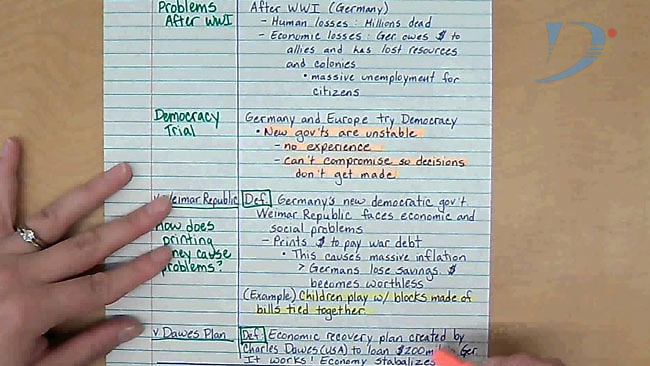 Problems
After WWI
After WWI (Germany)
- Human losses: Millions dead
- Economic losses: Ger owes $ to
allies and has lost resources
and colonies
• massive unemployment for
citizens
Democracy
Trial
Germany and Europe try Democracy
• New gov'ts are unstable
- no experience
- can't compromise so decisions
don't get made
Weimar Republic
Def: Germany's new democratic gov't
Weimar Republic faces economic and
social problems
How does
printing
cause
problems?
- Prints $ to pay war debt
• This causes massive inflation
> Germans lose savings. $
becomes worthless
(Example) Children play w/ blocks made of
bills tied together
v. Dawes Plan
Def: Economic recovery plan created by
Charles Dawes (USA) to loan $200 Ger.
It works! Economy stabalizes
D